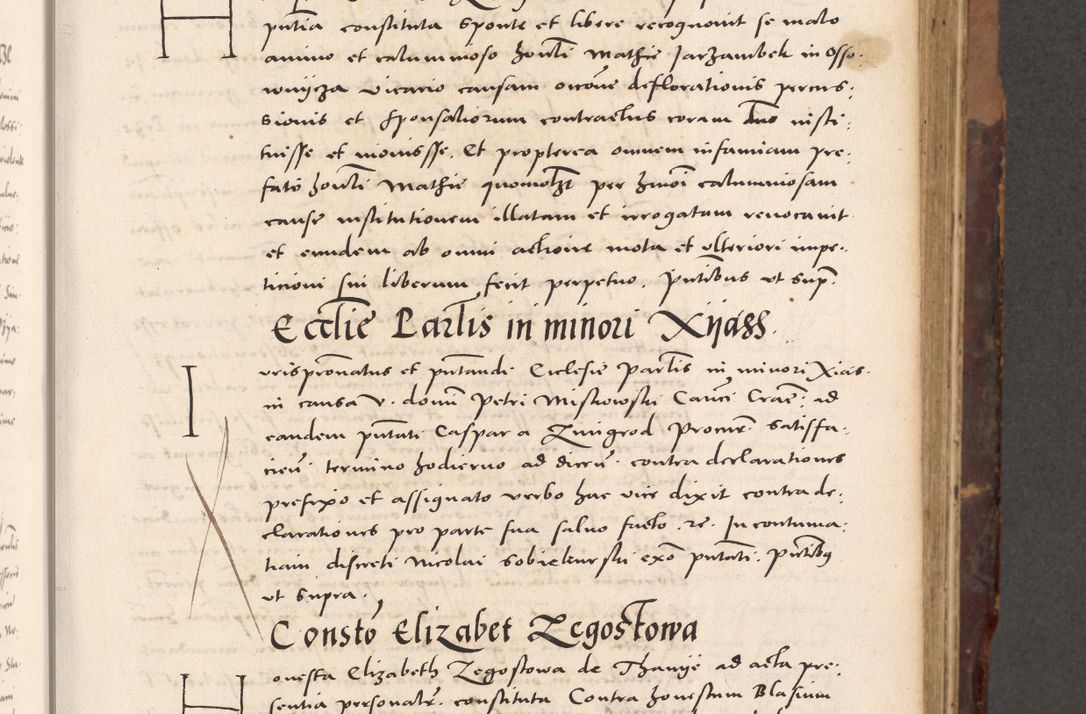 pūtia constituta sponte et libere recognovit se malo
animo et calumnioso honli Mathie Jarzambek in Osso-
wnycza vicario causam occoe deflorationis percus,
sionis et sponsaliorum contractus coram dno insti,
tuisse et movisse. Et propterea omnem infamiam pre,
fato honli Mathie quomolzt per hmoi calumniosam
cause institutionem illatam et irrogatam revocavit
et eundem ab omni actione mota et ulteriori impe,
ticioni sui liberum fecit perpetuo. Pntibus ut supra.
Ecclie Parlis in minori Xyass.
Iurispronatus et pntandi Ecclesie Parlis in minori Xias.
in causa v. domi Petri Mischowski Canci Crac. ad
eandem pntati Caspar a Zmigrod Procur. satisfa,
cien. termino hodierno ad dicen. contra declarationes
prefixo et assignato verbo hac vice dixit contra de,
clarationes pro parte sua salvo facto. re. In contuma,
tiam discreti Nicolai Sobielewski exo pntati. Pntibus
ut supra.
Consto Elizabet Zegostowa
Honesta Elizabeth Zegostowa de Thanije ad acta pre,
sentia personalr. constituta Contra honestum Blasium